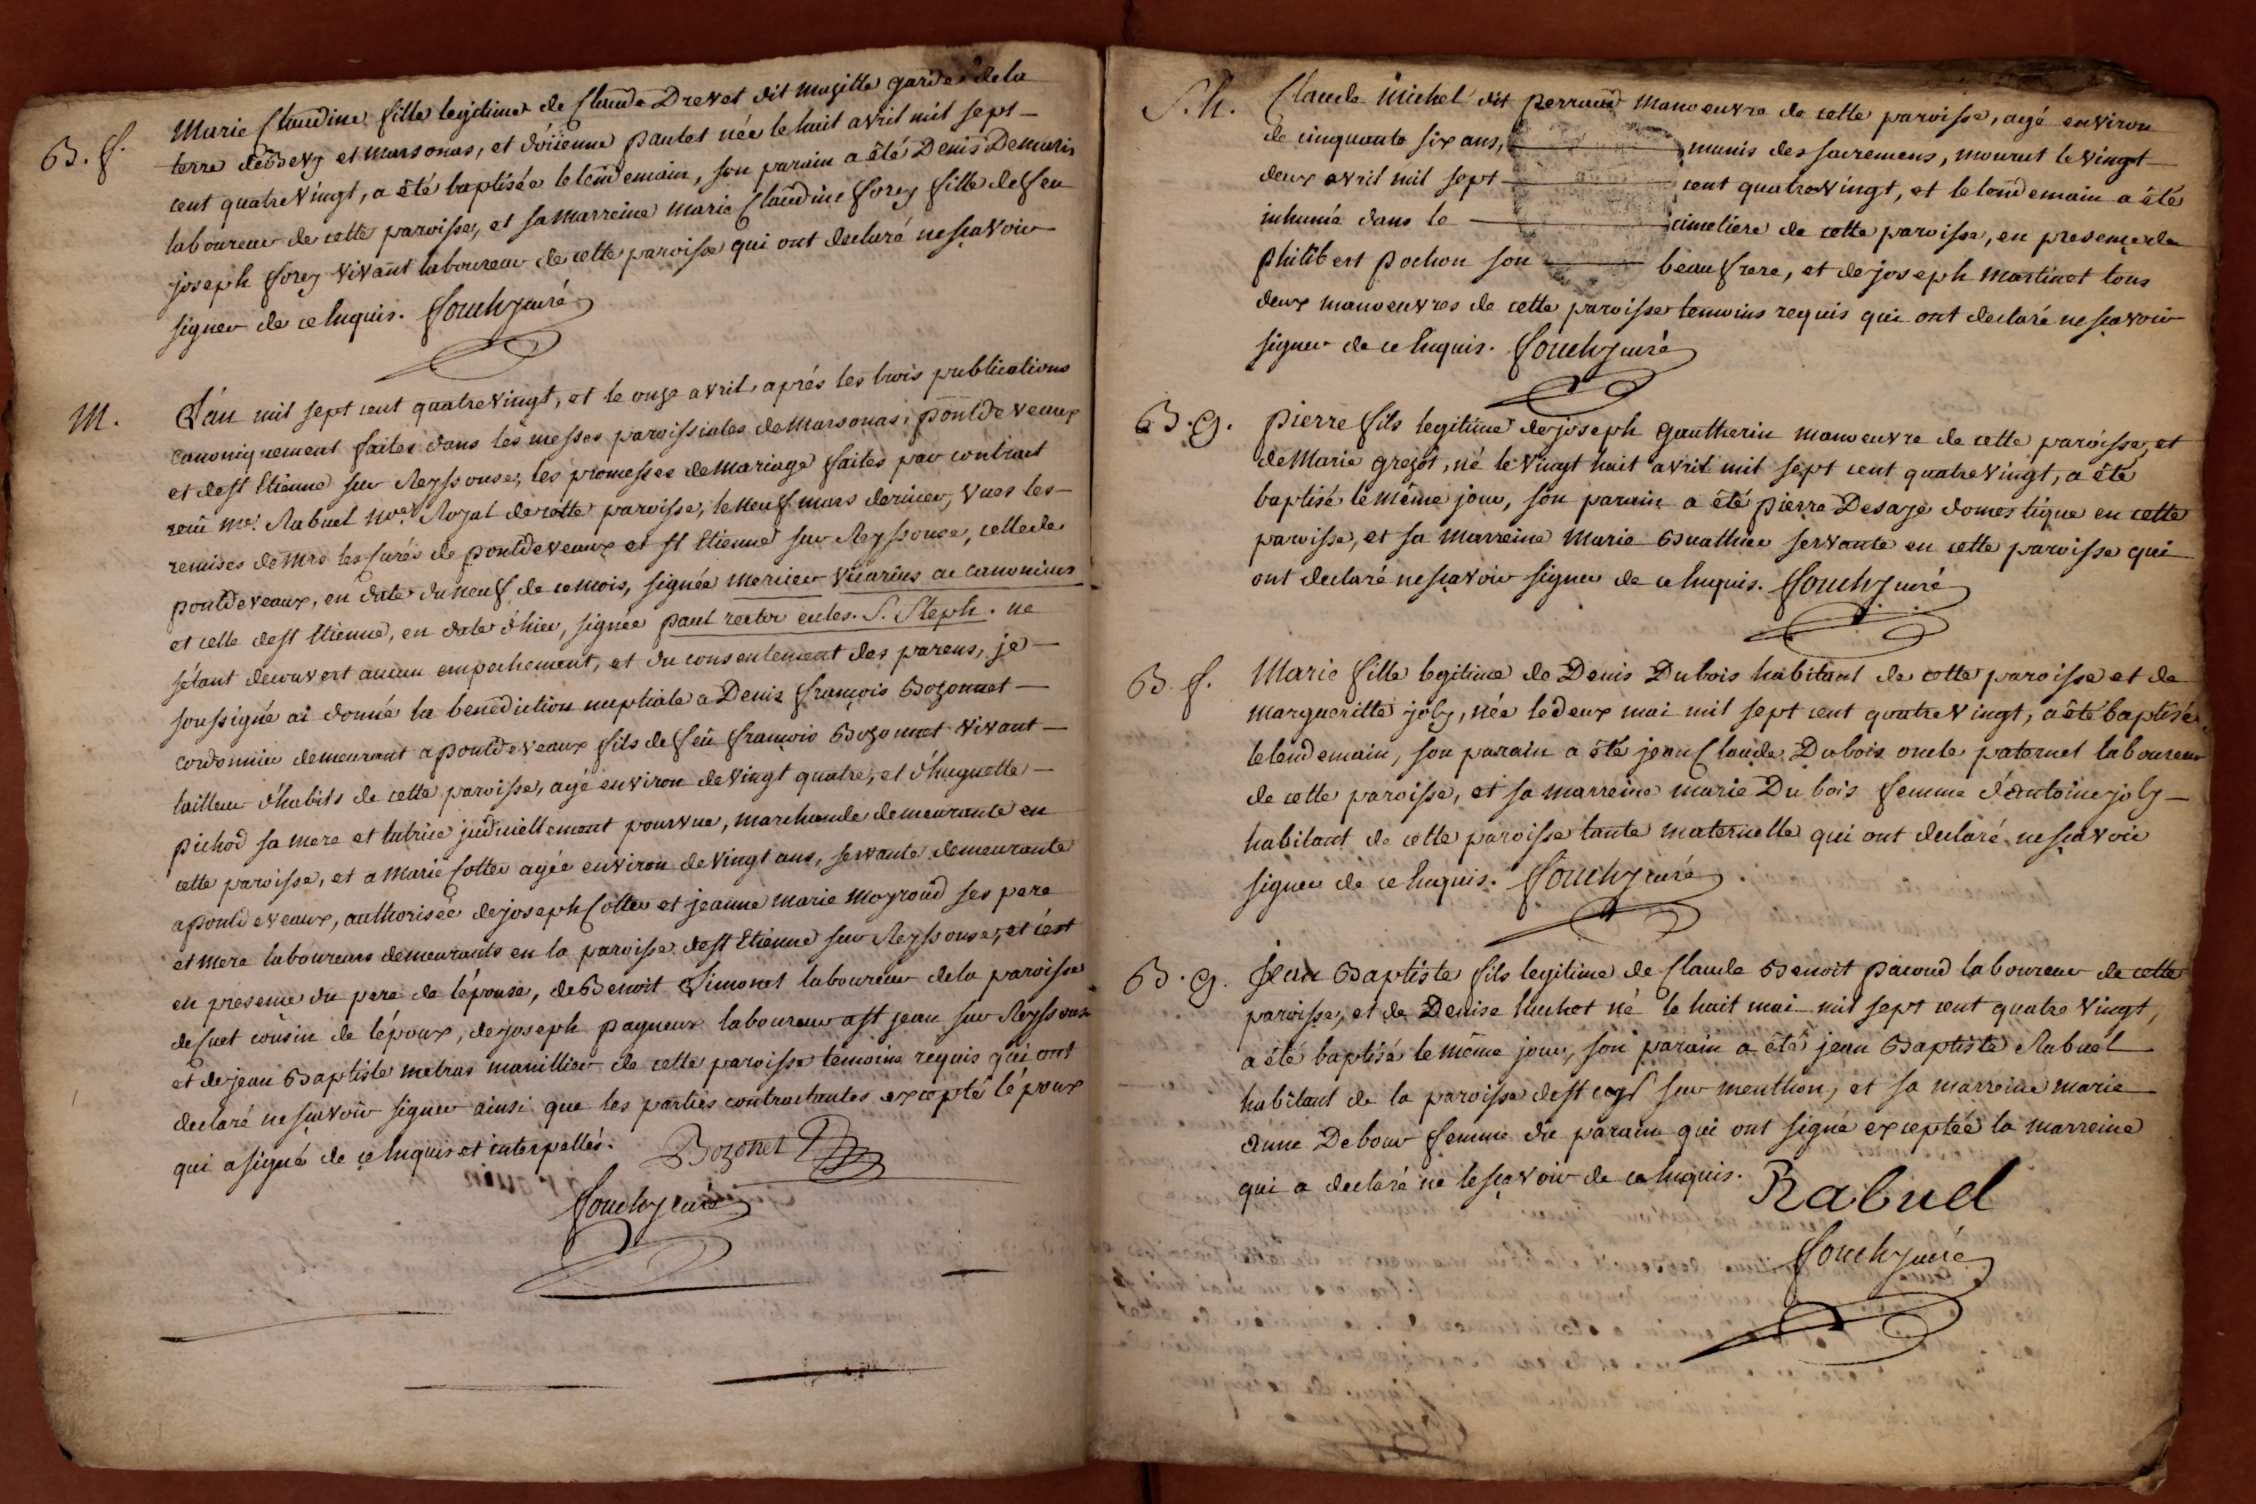 B. f.
Marie Claudine fille legitime de Claude Drevet dit mugitte garde de la
terre de Bevy et marsonas, et döiienne pautet née le huit avril mil sept
cent quatre vingt, a été baptisée le lendemain, son parain a été Denis Demaris
laboureur de cette paroisse, et sa marreine marie Claudine forey fille de feu
joseph forey vivant laboureur de cette paroisse qui ont declaré ne sçavoir
signer de ce enquis. Fouchy curé
M.
L'an mil sept cent quatre vingt, et le onze avril, aprés les trois publications
canoniquement faites dans les messes paroissiales de Marsonas, pontdeveaux
et de st Etienne sur Reyssouse, les promesses de mariage faites par contract
reçû me. Rabuel nore. Royal de cette paroisse, le neuf mars dernier, vues les
remises de mrs les curés de pontdeveaux et st Etienne sur Reyssouse, celle de
pontdeveaux, en date du neuf de ce mois, signée mercier vicarius ac canonicus
et celle de st Etienne, en date d'hier, signée paul rector eccles. S. Steph. ne
s'étant decouvert aucun empechement, et du consentement des parens, je
soussigné ai donné la benediction nuptiale a Denis françois Bozonnet
cordonnier demeurant a pontdeveaux fils de feu françois Bozonnet vivant
tailleur d'habits de cette paroisse, agé environ de vingt quatre, et d'huguette
pichod sa mere et tutrice judiciellement pourvue, marchande demeurante en
cette paroisse, et a marie Cottey agée environ de vingt ans, servante demeurante
a pontdeveaux, authorisée de joseph Cottey et jeanne marie moyroud ses pere
et mere laboureurs demeurants en la paroisse de st Etienne sur Reyssouse, et c'est
en presence du pere de l'épouse, de Benoit Simonet laboureur de la paroisse
de Cuet cousin de l'époux, de joseph pagneux laboureur a st jean sur Reyssouse
et de jean Baptiste metras manillier de cette paroisse temoins requis qui ont
declaré ne sçavoir signer ainsi que les parties contractantes excepté l'époux
qui a signé de ce enquis et interpellés. Bozonet
Fouchy curé
S. h.
Claude Michel dit perraud manoeuvre de cette paroisse, agé environ
de cinquante six ans, munis des sacremens, mourut le vingt
deux avril mil sept cent quatre vingt, et le lendemain a été
inhumé dans le cimetiere de cette paroisse, en presence de
philibert pochon son beau frere, et de joseph martinet tous
deux manoeuvres de cette paroisse temoins requis qui ont declaré ne sçavoir
signer de ce enquis. Fouchy curé
B. g.
pierre fils legitime de joseph gautherin manoeuvre de cette paroisse, et
de Marie grezot, né le vingt huit avril mil sept cent quatre vingt, a été
baptisé le même jour, son parain a été pierre Desaye domestique en cette
paroisse, et sa marreine Marie Buathier servante en cette paroisse qui
ont declaré ne sçavoir signer de ce enquis. Fouchy curé
B. f.
Marie fille legitime de Denis Dubois habitant de cette paroisse et de
margueritte joly, née le deux mai mil sept cent quatre vingt, a été baptisée
le lendemain, son parain a été jean Claude Dubois oncle paternel laboureur
de cette paroisse, et sa marreine marie Du bois femme d'antoine joly
habitant de cette paroisse tante maternelle qui ont declaré ne sçavoir
signer de ce enquis. Fouchy curé
B. g.
Jean Baptiste fils legitime de Claude Benoit pacoud laboureur de cette
paroisse, et de Denise huchet né le huit mai mil sept cent quatre vingt,
a été baptisé le même jour, son parain a été jean Baptiste Rabuel
habitant de la paroisse de st sur menthon, et sa marreine marie
anne Debour femme du parain qui ont signé exceptée la marreine
qui a declaré ne le sçavoir de ce enquis.
Rabuel
Fouchy curé